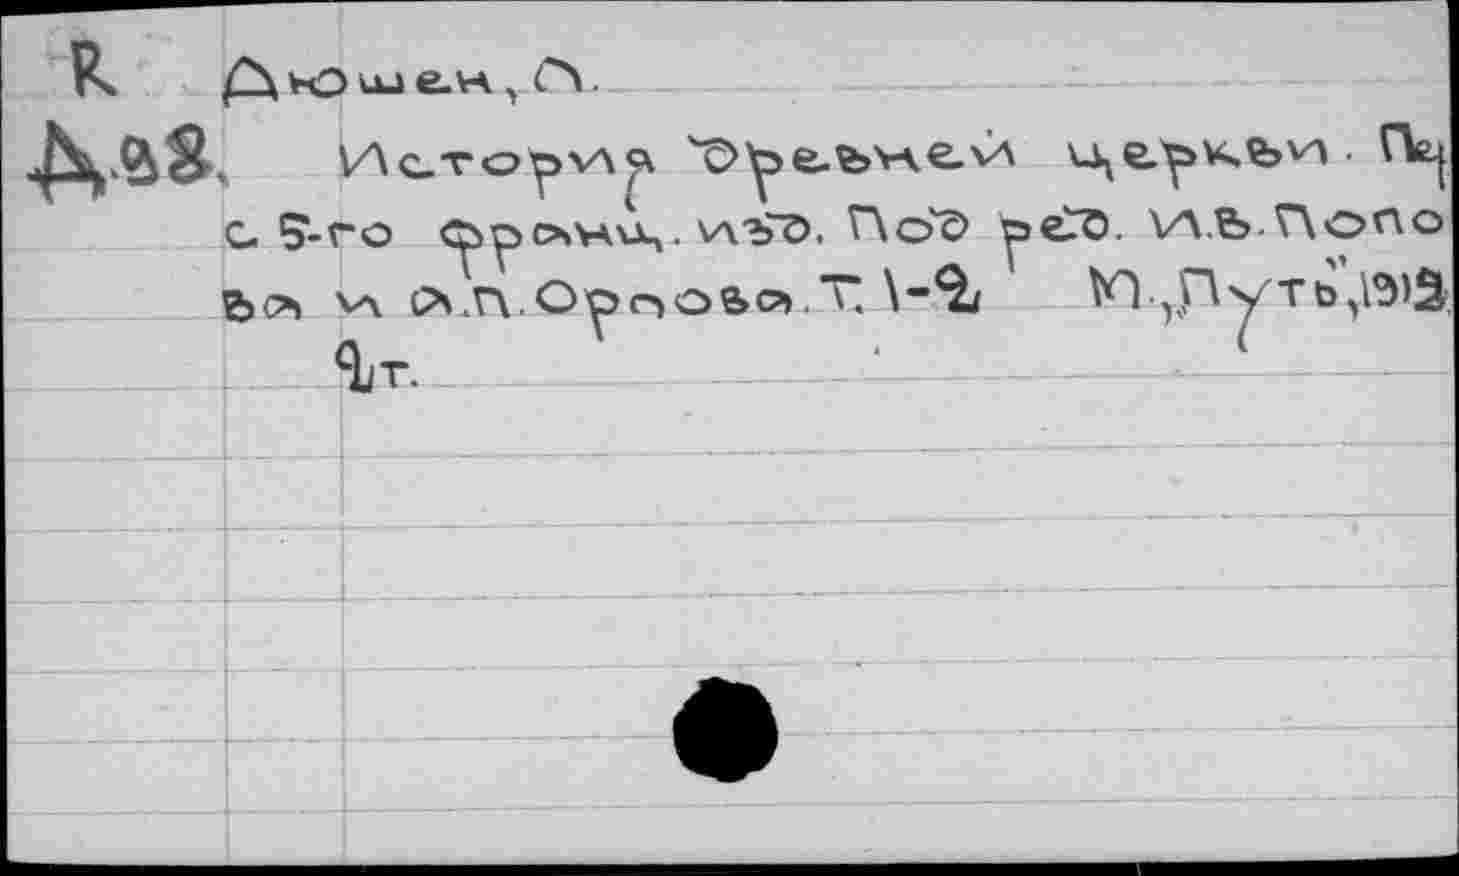 R Дюшен, Л.
История древней церкви. Пер
с 5-го франц. изд. Под ред. И.В. Попо
ва и А.П. Орлова. Т. 1-2 М. „Путь", 1912.
2т.